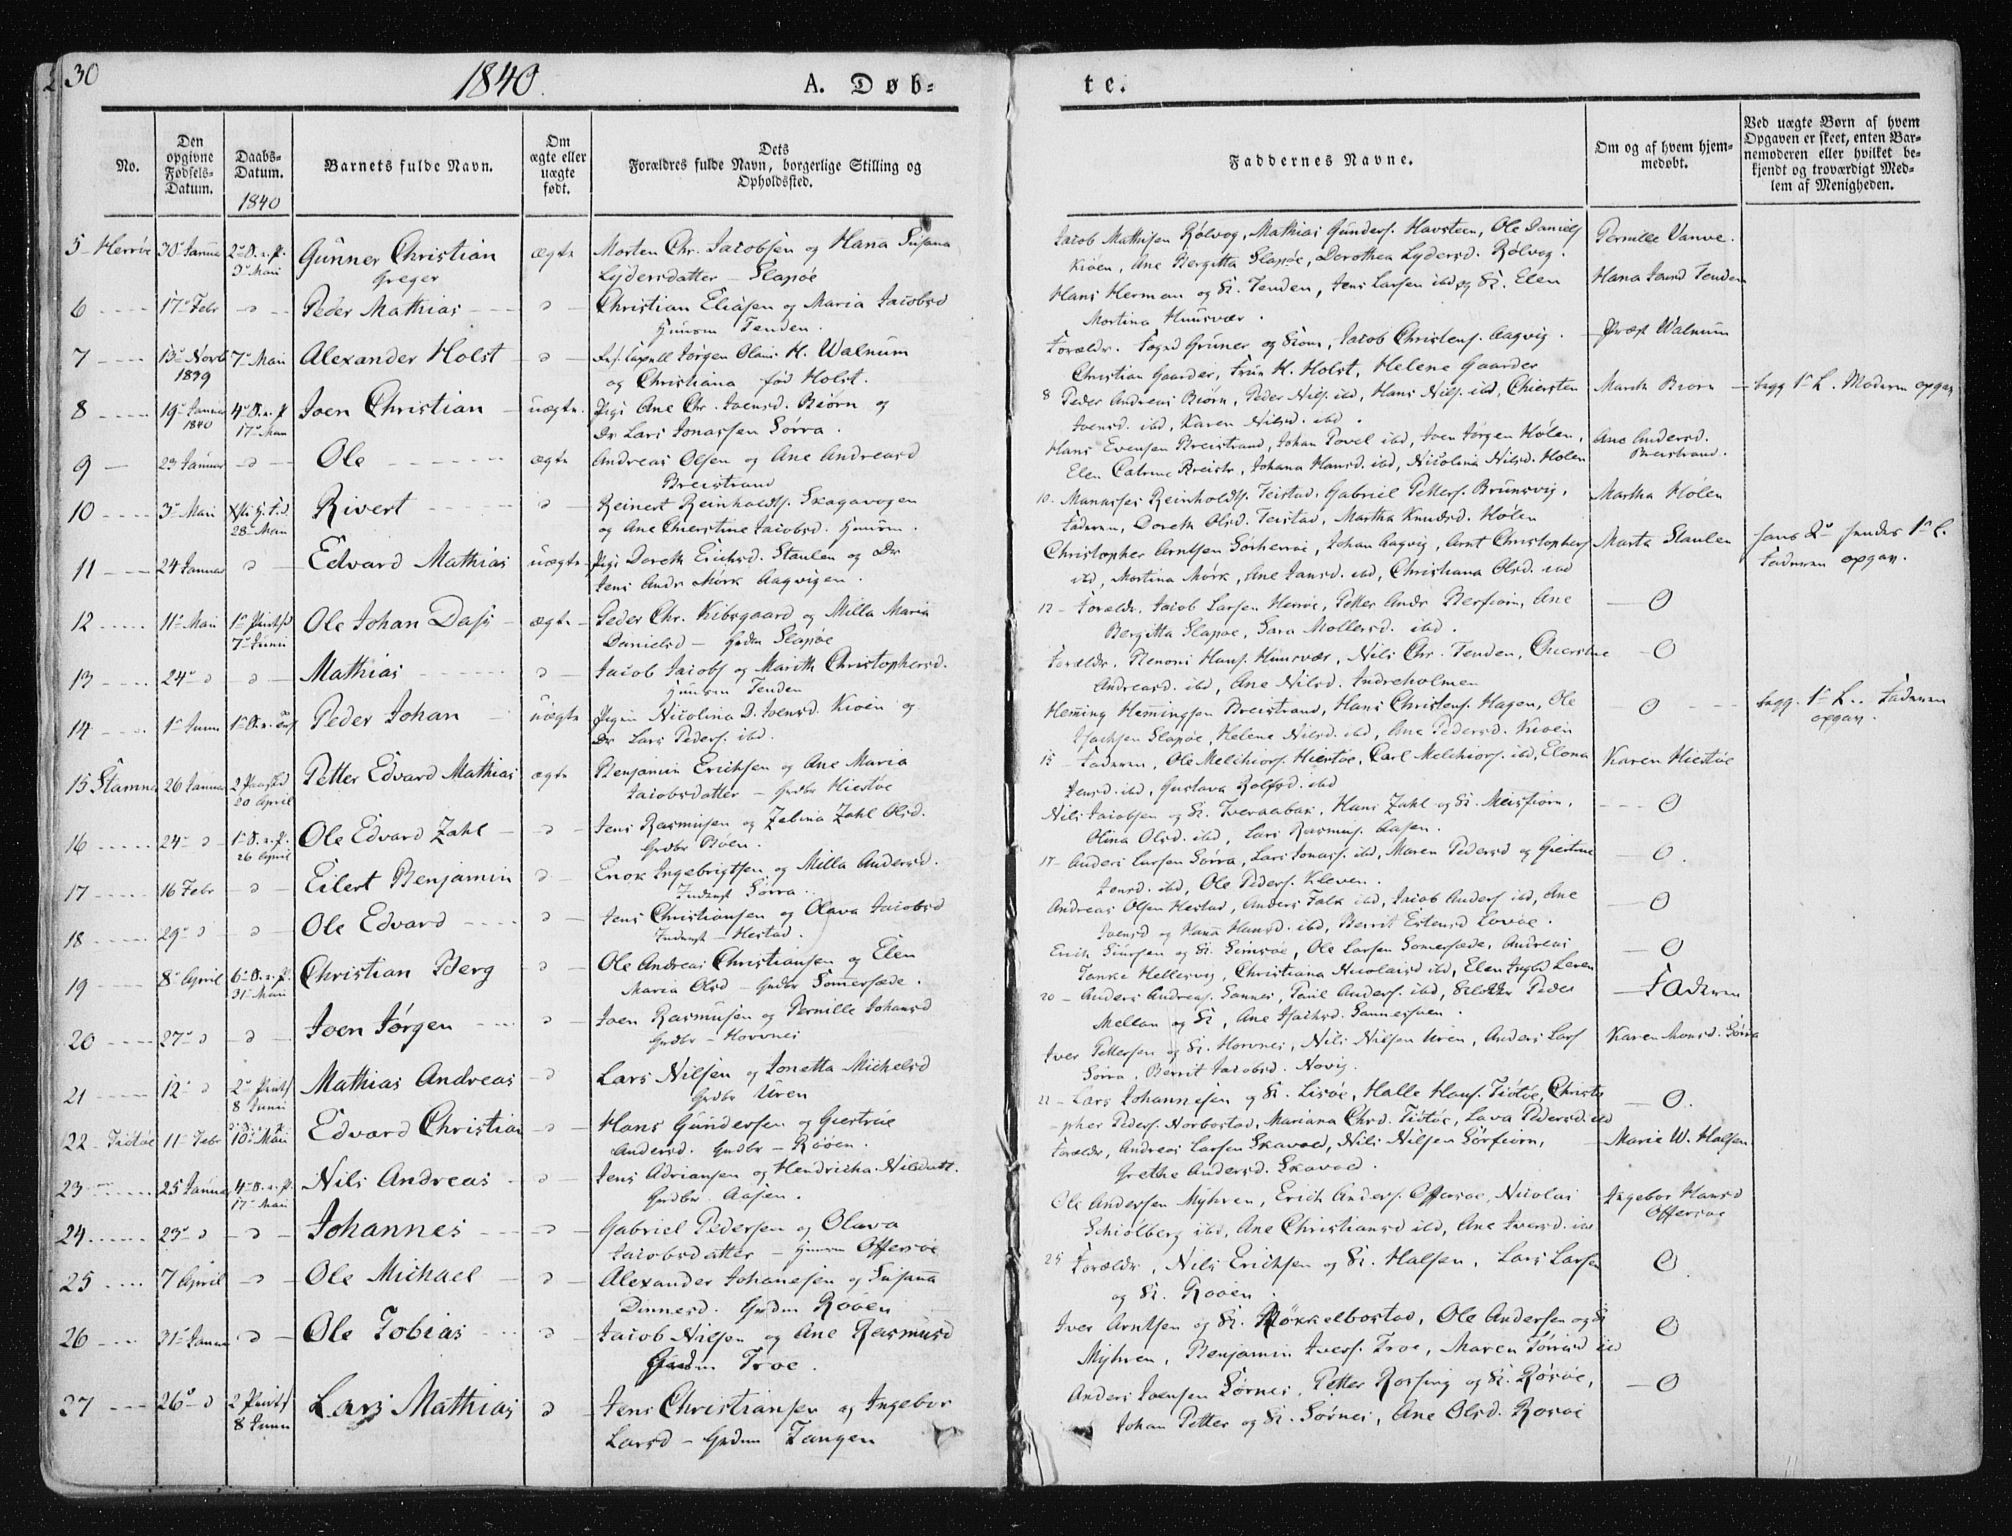 30
1840.
A. Døb=
te.
No.
Den opgivne Fødsels-Datum.
Daabs-Datum.
1840
Barnets fulde Navn.
Om ægte eller uægte født.
Dets Forældres fulde Navn, borgerlige Stilling og Opholdssted.
Faddernes Navne.
Om og af hvem hjemmedøbt.
Ved uægte Børn af hvem Opgaven er skeet, enten Barnemoderen eller hvilket bekjendt og troværdigt Medlem af Menigheden.
5 Herrøe 30 Gunner Christian ægte Morten Chr. Jacobsen og Hana Susana
3 Mai Greger Lydersdatter – Slapøe
Jacob Mathisen Rølvog, Mathias Gunders. Havsteen, Ole Daniels
Kiøen, Ane Bergitta Slapøe, Dorothea Lydersd. Rølvog.
Pernille Vanve.
6 17 Febr Peder Mathias Christian Eliasen og Maria Jacobsd
Huusm Tenden.
Hans Herman og K. Tenden, Jens Larsen ibd og K. Elen
Mortina Huusvær.
Hana Tenden
7 13 Novb 7 Mai Alexander Holst Jørgen Olaus H. Walnum
1839 og Christiana fød Holst.
Forældr. Fogd Gruner og Jacob Christens. Aagvig.
Christian Gaarder, Frue H. Holst, Helene Gaarder
Præst Walnum
8 19 Januar 4 S. e. P. Joen Christian uægte Pige Ane Chr. Joensd. Biørn og
1840 17 Mai Dr Lars Jonassen Sørra.
8 Peder Andreas Biørn, Peder Nils. ibd, Hans Nils. ibd, Chiersten
Joensd. ibd, Karen Nilsd. ibd.
Mareth Biørn begg 1 L. Moderen opgav
9 23 Januar Ole ægte Andreas Olsen og Ane Andreasd
Breistrand
Hans Evensen Breistrand, Johan Povel ibd, Joen Jørgen Holen,
Elen Catrine Breistr, Johana Hansd. ibd, Nicolina Nilsd. Holen
Ane Andersd.
Breistrand.
10 3 Mai 28 Mai Rivert Reinert Reinholdts. Skagavogen
og Ane Chierstine Jacobsd. Huusm.
10. Manasses Reinholdts. Teistad, Gabriel Petters. Brunsvig,
Faderen, Doreth Olsd. Teistad, Martha Knudsd. Holen
Martha Holen
11 24 Januar Edvard Mathias uægte Pige Doreth Erichsd. Staulen og Dr
Jens Andr Mørk Aagvigen.
Christopher Arntsen Sørherrøe, Johan Aagvig, Arnt Christophers
ibd, Mortina Mørk, Ane Jansd. ibd, Christiana Olsd. ibd
Marta Staulen hans 2 hendes 1 L.
Faderen opgav.
12 11 Mai 1 Pintsd Ole Johan Dass ægte Peder Chr. Kibsgaard og Milla Maria
7 Junii Danielsd – Grdm Slapøe
12 – Forældr. Jacob Larsen Herrøe, Petter Andr Berfiorn, Ane
Bergitta Slapøe, Sara Mollersd. ibd.
O
13 24 Mathias Jacob Jacobs og Mareth Christophersd.
Huusm Tenden
Forældr. Benoni Hans. Huusvær, Nils Chr. Tenden, Chierstine
Andreasd. ibd, Ane Nilsd. Indreholmen
O
14 1 Junii Peder Johan uægte Pigen Nicolina D. Joensd. Kiøen og
Dr Lars Peders. ibd.
Heming Hemingsen Breistrand, Hans Christens. Hagen, Ole
Isachsen Slapøe, Helene Nilsd. ibd, Ane Pedersd. Kiøen
O begg. 1 L. Faderen
opgav.
15 Stamnes 26 Januar 2 Paaskd Petter Edvard Mathias ægte Benjamin Erichsen og Ane Maria
20 April Jacobsdatter – Grdbr Hiestøe
15 – Faderen, Ole Melchiors. Hiestøe, Carl Melchiors. ibd, Elona
Jensd. ibd, Gustava Rolfsd. ibd
Karen Hiestøe
16 24 1 S. e. P. Ole Edvard Zahl Jens Rasmusen og Zelina Zahl Olsd.
26 April Grdbr Bøen.
Nils Jacobsen og K. Tveraabak, Hans Zahl og K. Meisfiorn,
Olina Olsd. ibd, Lars Rasmus. Aasen.
O
17 16 Febr Eilert Benjamin Enok Ingebrigtsen og Milla Andersd.
Sørra.
17 – Anders Larsen Sørra, Lars Jonass. ibd, Maren Pedersd og Giertrue
Jonsd. ibd, Ole Peders. Kleven.
O.
18 29 Ole Edvard Jens Christiansen og Olava Jacobsd
– Hestad.
Andreas Olsen Hestad, Anders Falk ibd, Jacob Anders ibd, Ane
Joensd og Hana Hansd. ibd, Berrit Estensd Lovøe.
O
19 8 April 6 S. e. P. Christian Berg Ole Andreas Christiansen og Elen
31 Mai Maria Olsd – Grdbr Somersæde.
Erich Siursen og K. Simsøe, Ole Larsen Somersæde, Andreas
Tanke Hellesvig, Christiana Nicolaisd ibd, Elen Ingbd Leren
O
20 27 Joen Jørgen Joen Rasmusen og Pernille Johansd
Grdbr – Horvnes
20 – Anders Andreas. Sannes, Poul Anders. ibd, Peder
Mellan og K, Ane Isachsd. Sannessuen.
Faderen
21 12 2 Pintsd Mathias Andreas Lars Nilsen og Jonetta Michelsd
8 Junii Grdbr Uren
Iver Pettersen og K. Horvnes, Nils Nilsen Uren, Anders Lars
Sørra, Berrit Jacobsd. Novig.
Karen Monsd. Sørra
22 – Tiøtøe 11 Febr 10 Mai Edvard Christian Hans Gundersen og Giertrue
Andersd. Grdbr – Røøen.
22 – Lars Johannesen og K. Lisøe, Halle Hans. Tiøtøe, Christo
pher Peders. Norbostad, Mariana Chrd. Tiøtøe, Lava Pedersd ibd
O.
23 25 Januar 4 S. e. P. Nils Andreas Jens Adriansen og Hendricha Nilsdatt.
17 Mai Grdbr. Aasen.
Forældr, Andreas Larsen Skavoed, Nils Nilsen Sørfiorn,
Grethe Andersd. Skavoed.
Marie W. Halsen.
24 23 Johannes Gabriel Pedersen og Olava
Jacobsdatter – Huusm Offersøe
Ole Andersen Myhren, Erich Anders. Offersøe, Nicolai
Schiølberg ibd, Ane Christiansd ibd, Ane Iversd. ibd
Ingebor Hansd
Offersøe
25 7 April Ole Michael Alexander Johanesen og Susanna
Dinnesd. Grdm Røøen
25 Forældr, Nils Erichsen og K. Halsen, Lars Larsen
og K. Røøen.
O
26 31 Januar Ole Tobias Jacob Nilsen og Ane Rasmusd
Grdm Troe.
Iver Arntsen og K. Røkkelbostad, Ole Andersen og K
Myhren, Benjamin Ivers. Troe, Maren ibd
O
27 26 2 Pintsd Lars Mathias Jens Christiansen og Ingebor
8 Junii Larsd – Grdm Tangen
Anders Joensen Sørnes, Petter Rossing og K. Rosøe,
Johan Petter og K. Sørnes, Ane Olsd. Rosøe
O